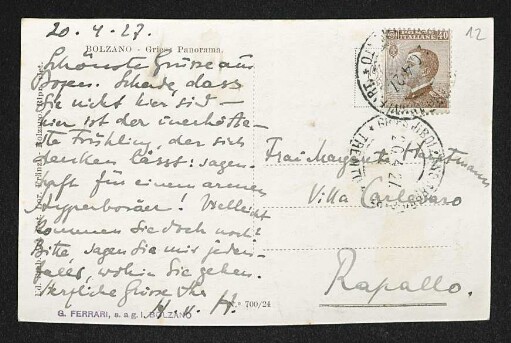 20. 4. 27.
BOLZANO - Gries Panorama.
Schönste Grüsse aus
Bozen. Schade, dass
Sie nicht hier sind –
hier ist der
ste Frühling, der sich
denken lässt: sagen-
haft für einen armen
Hyperboräer! Vielleicht
kommen Sie doch noch?
Bitte, sagen Sie mir jeden-
falls, wohin Sie gehen.
Herzliche Grüsse Ihr
G. FERRARI, s. a. g. l. BOLZANO
N.° 700/24
12
ITALIANE
40
Frau Margarete Hauptmann
Villa Carlevaro
Rapallo.